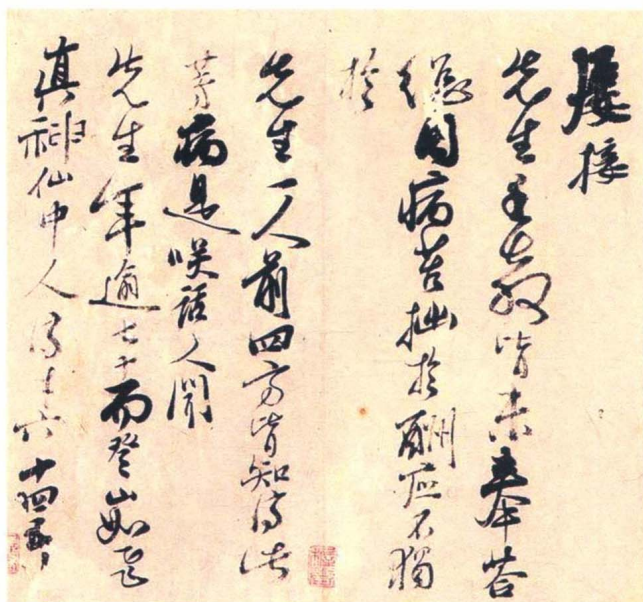 屢接
先生手教皆未奉荅
總因病苦拙於酬應不獨
於
先生一人前四方皆知濟此
等病是咲話人聞
先生年逾七十而登山如飛
真神仙中人濟六十四五